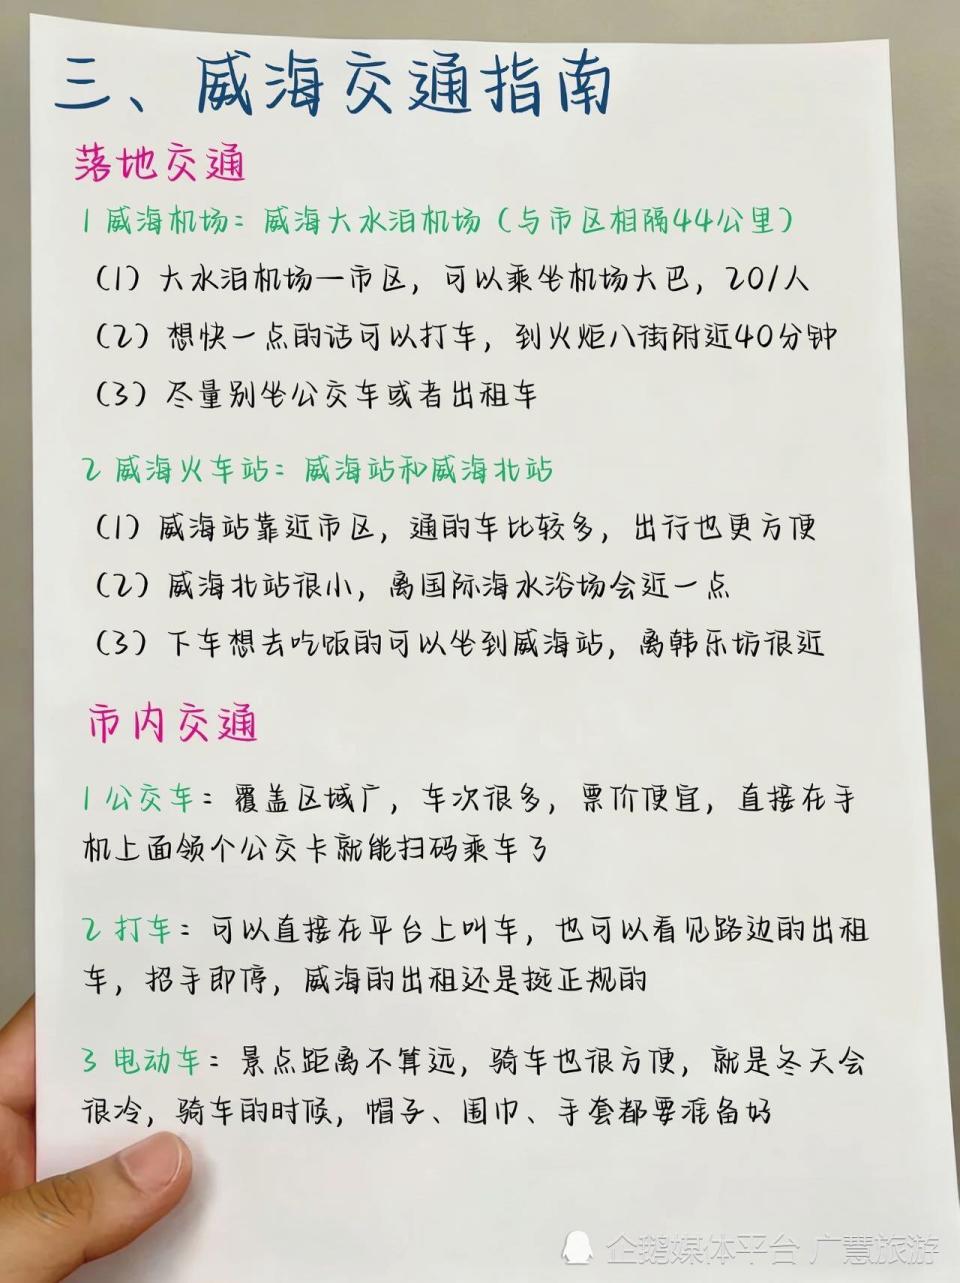 三、威海交通指南
落地交通
1 威海机场：威海大水泊机场（与市区相隔44公里）
（1）大水泊机场一市区，可以乘坐机场大巴，20/人
（2）想快一点的话可以打车，到火炬八街附近40分钟
（3）尽量别坐公交车或者出租车
2 威海火车站：威海站和威海北站
（1）威海站靠近市区，通的车比较多，出行也更方便
（2）威海北站很小，离国际海水浴场会近一点
（3）下车想去吃饭的可以坐到威海站，离韩乐坊很近
市内交通
1 公交车：覆盖区域广，车次很多，票价便宜，直接在手
机上面领个公交卡就能扫码乘车了
2 打车：可以直接在平台上叫车，也可以看见路边的出租
车，招手即停，威海的出租还是挺正规的
3 电动车：景点距离不算远，骑车也很方便，就是冬天会
很冷，骑车的时候，帽子、围巾、手套都要准备好
企鹅媒体平台 广慧旅游